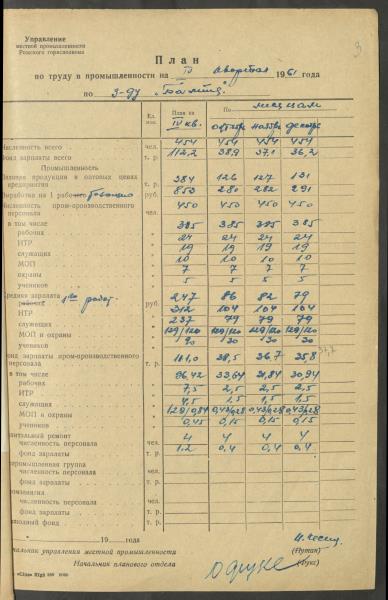 Управление
местной промышленности
Рижского горисполкома
3
План
по труду в промышленности на IV квартал 1961 года
по з-ду
Ед. изм. План на IV кв. По месцам
октябрь ноябрь декабрь
Численность всего чел. 454 454 454 454
Фонд зарплаты всего т. р. 112,2 38,9 37,1 36,2
Промышленность
продукция в оптовых ценах
предприятия т. р. 384 126 127 131
Выработка на 1 рабочего руб. 853 280 282 291
Численность пром-производственного
персонала чел. 450 450 450 450
в том числе
рабочих " 385 385 385 385
ИТР " 24 24 24 24
служащих " 19 19 19 19
МОП " 10 10 10 10
охраны " 7 7 7 7
учеников " 5 5 5 5
Средняя зарплата руб. 247 86 82 79
ИТР " 312 104 104 104
служащих " 237 79 79 79
МОП и охраны " 129/120 129/120 129/120 129/120
учеников " 90 30 30 30
Фонд зарплаты пром-производственного
персонала т. р. 111,0 38,5 36,7 35,8
в том числе
рабочих " 96,42 33,64 31,84 30,94
ИТР " 7,5 2,5 2,5 2,5
служащих " 4,5 1,5 1,5 1,5
МОП и охраны " 1,29/0,84 0,43/0,28 0,43/0,28 0,43/0,28
учеников " 0,45 0,15 0,15 0,15
Капитальный ремонт
численность персонала чел. 4 4 4 4
фонд зарплаты т. р. 1.2 0,4 0,4 0,4
Непромышленная группа
численность персонала чел.
фонд зарплаты т. р.
численность персонала чел.
фонд зарплаты т. р.
фонд т. р.
" 19 года
Начальник управления местной промышленности
Начальник планового отдела (Фукс)